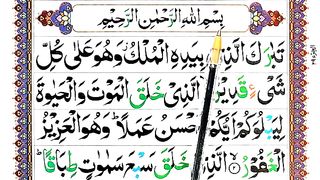 بِسْمِ اللهِ الرَّحْمٰنِ الرَّحِيْمِ
تَبٰرَكَ الَّذِىْ بِيَدِهِ الْمُلْكُ وَهُوَ عَلٰى كُلِّ
شَىْءٍ قَدِيْرُ ۙ الَّذِىْ خَلَقَ الْمَوْتَ وَالْحَيٰوةَ
لِيَبْلُوَكُمْ اَيُّكُمْ اَحْسَنُ عَمَلًا ؕ وَهُوَ الْعَزِيْزُ
الْغَفُوْرُ ۙ الَّذِىْ خَلَقَ سَبْعَ سَمٰوٰتٍ طِبَاقًا ؕ